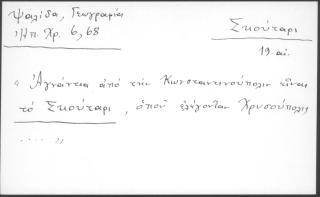 Ψαλίδα, Γεωγραφία
Ἠπ. Χρ. 6, 68
Σκούταρι
19 αἰ.
« Ἀγνάντια ἀπὸ τὴν Κωνσταντινούπολιν εἶναι
τὸ Σκούταρι, ὁποῦ ἐλέγονταν Χρυσούπολις
..... »